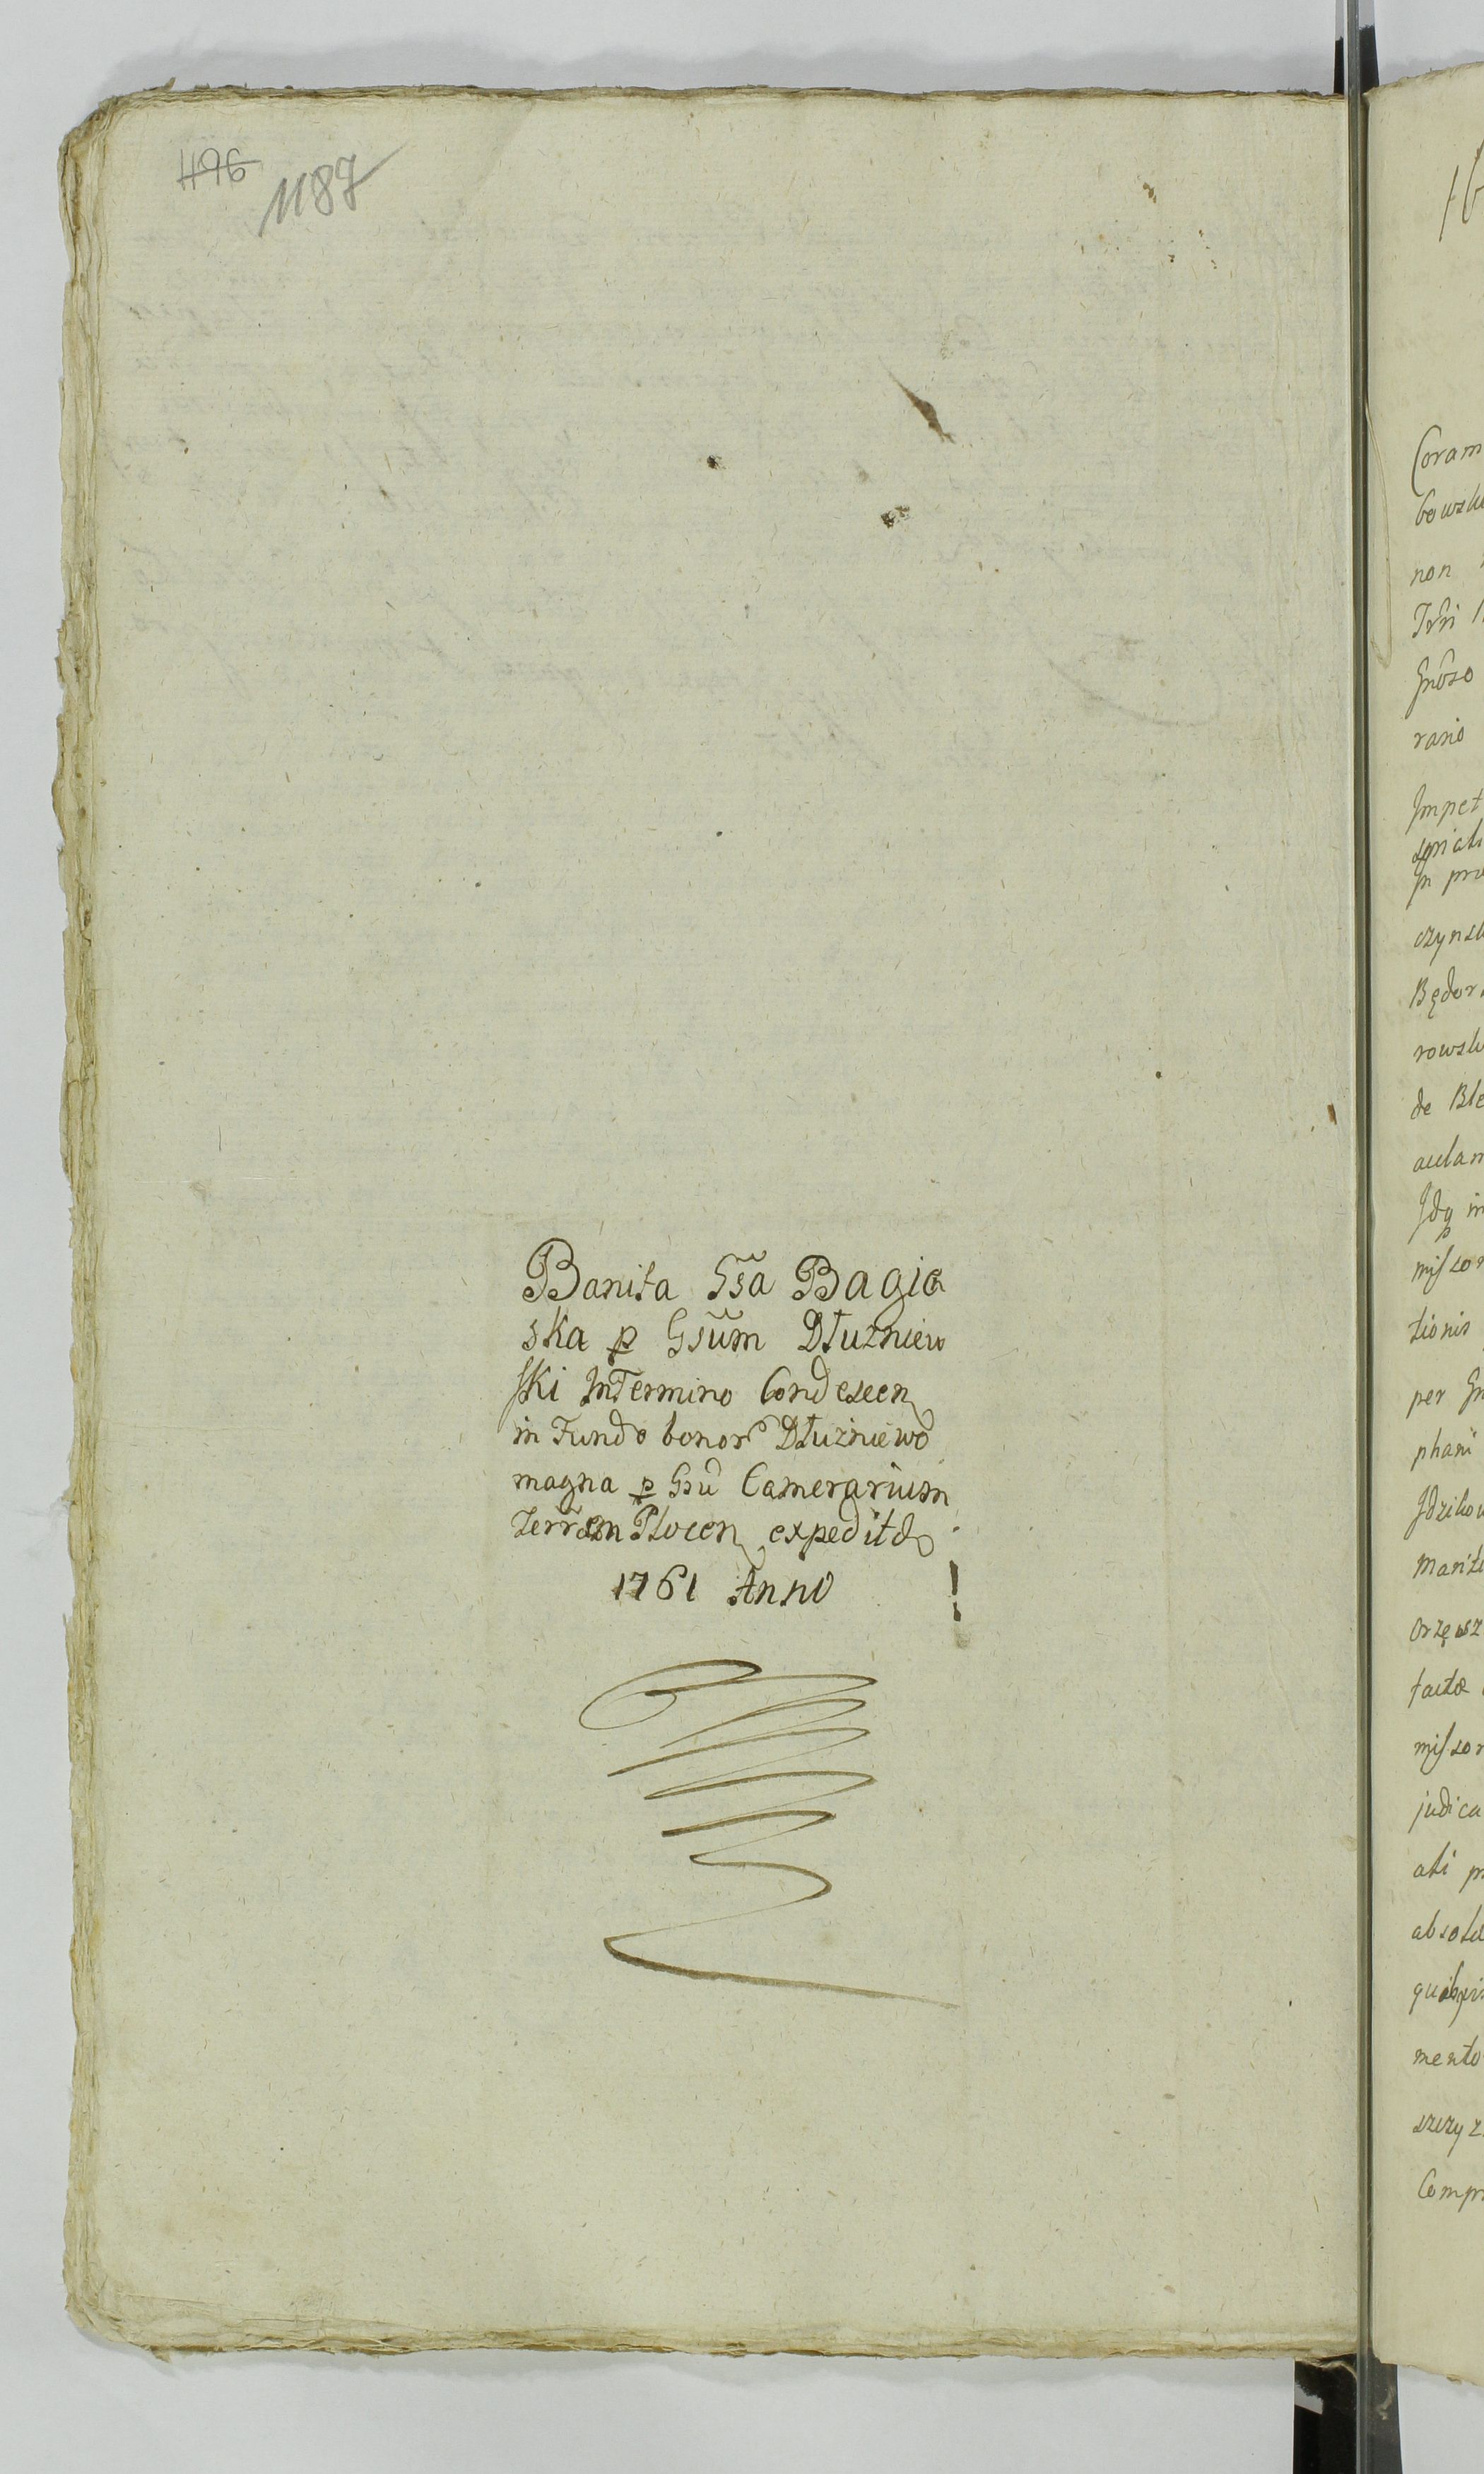 1196
1187
Banita Gsa Bagie
ska p Gsum Dłużniew
ski in Termino Condescen
in Fundo bonor Dłużniewo
magna p Gsu Camerarium
Terrem Plocen expedita
1761 Anno
Coram
bowsk
non
Gnoso
rario
Impet
czynsk
Będor
rowsk
de Ble
aulam
Idq in
missor
tionis
per Gn
phani
Idziko
Marit
Orzesz
factæ
missor
judica
ati p
absol
mento
szczyz
Compr